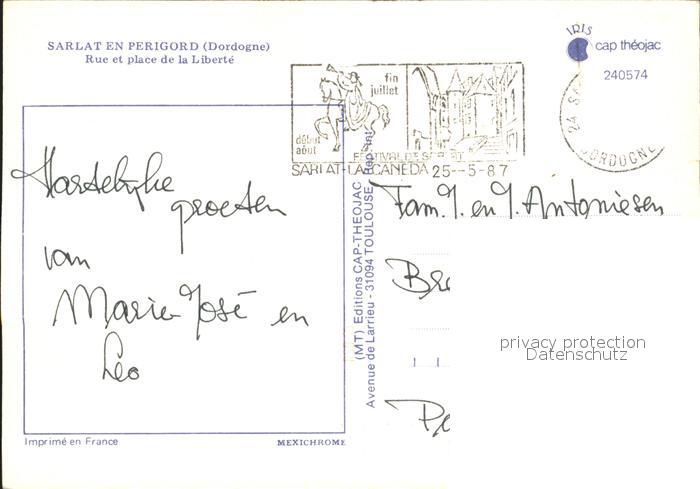 SARLAT EN PERIGORD (Dordogne)
Rue et place de la Liberté
IRIS
cap théojac
240574
fin
juillet
début
août
FESTIVAL DE SARLAT
SARLAT-LA-CANEDA 25--5-87
24
DORDOGNE
Hartelijke
groeten
van
Marie-José en
Leo
(MT) Editions CAP-THEOJAC
Avenue de Larrieu - 31094 TOULOUSE
Fam. J. en J. Antonissen
privacy protection
Datenschutz
Imprimé en France
MEXICHROME